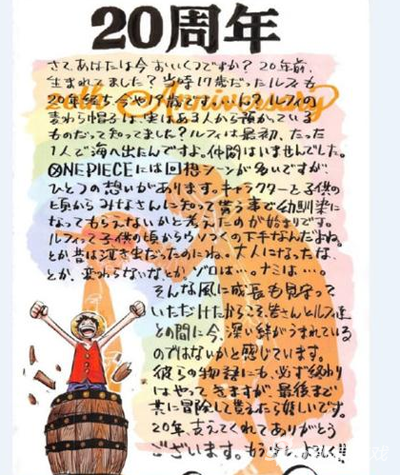 20周年
さて、あなたは今おいくつですか？20年前、
生まれてました？当時17歳だったルフィも
20年経ち今や19歳です。いいえ？ルフィの
麦わら帽子は、実はある人から預かっている
ものだって知ってました？ルフィは最初、たった
1人で海へ出たんですよ。仲間はいませんでした。
ONE PIECEには回想シーンが多いですが、
ひとつの想いがあります。キャラクターと子供の
頃からみなさんに知って貰う事で幼馴染に
なってもらえないかと考えたのが始まりです。
ルフィって子供の頃からウソつくの下手なんだよね。
とか昔は泣き虫だったのにね、大人になったな、
とか、変わらないなとか。ゾロは…。ナミは…。
そんな風に成長も見守って
いただけたからこそ、皆さんとルフィ達
との間に今、深い絆がうまれている
のではないかと感じています。
彼らの物語にも、必ず終わり
はやってきますが、最後まで
共に冒険して貰えたら嬉しいです。
20年、支えてくれてありがとう
ございます。もう少しよろしく!!
20th Anniversary